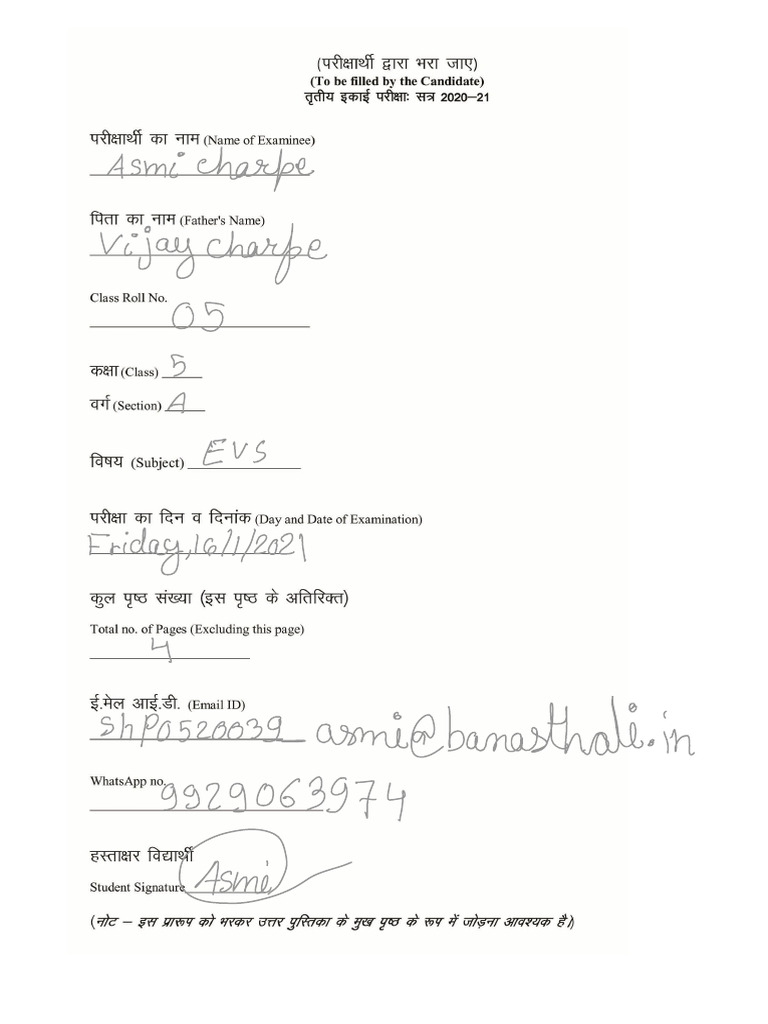 (परीक्षार्थी द्वारा भरा जाए)
(To be filled by the Candidate)
तृतीय इकाई परीक्षाः सत्र 2020–21
परीक्षार्थी का नाम (Name of Examinee)
Asmi charpe
पिता का नाम (Father's Name)
Vijay charpe
Class Roll No.
05
कक्षा (Class) 5
वर्ग (Section) A
विषय (Subject) EVS
परीक्षा का दिन व दिनांक (Day and Date of Examination)
Friday, 16/1/2021
कुल पृष्ठ संख्या (इस पृष्ठ के अतिरिक्त)
Total no. of Pages (Excluding this page)
4
ई.मेल आई.डी. (Email ID)
shp0520039_asmi@banasthali.in
WhatsApp no. 9929063974
हस्ताक्षर विद्यार्थी
Student Signature Asmi
(नोट – इस प्रारूप को भरकर उत्तर पुस्तिका के मुख पृष्ठ के रूप में जोड़ना आवश्यक है।)